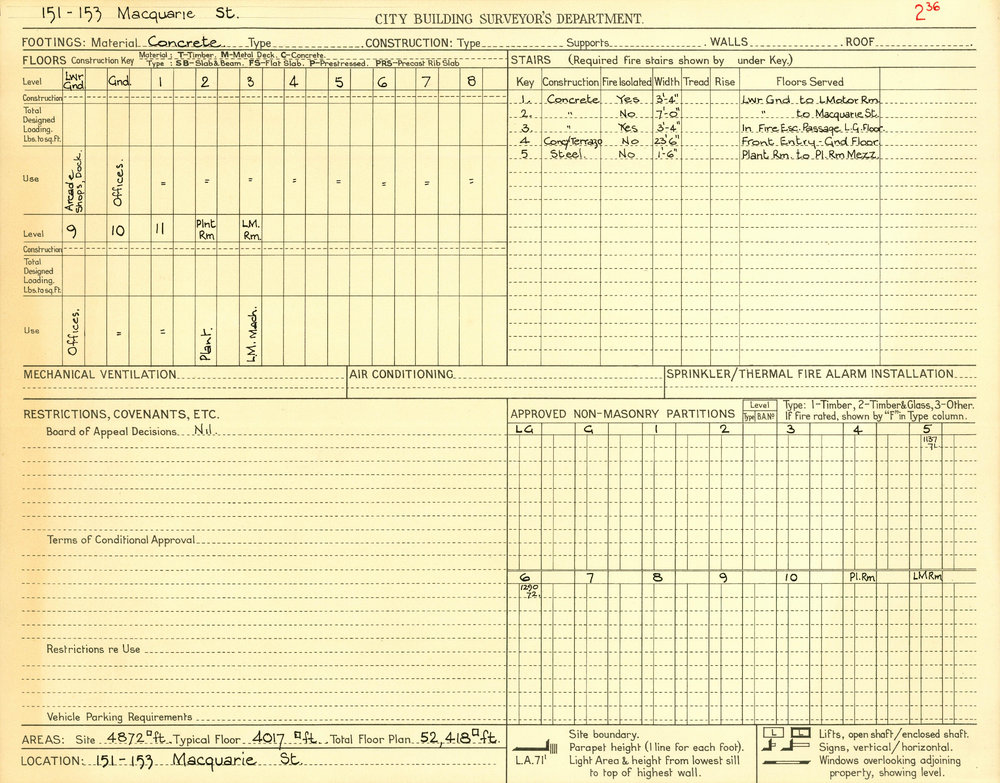 151-153 Macquarie St.
CITY BUILDING SURVEYOR'S DEPARTMENT.
2 36
FOOTINGS: Material Concrete Type CONSTRUCTION: Type Supports WALLS ROOF
FLOORS Construction Key Material: T-Timber, M-Metal Deck, C-Concrete.
Type: SB-Slab & Beam. FS-Flat Slab. P-Prestressed. PRS-Precast Rib Slab
Level Lwr Gnd. Gnd. 1 2 3 4 5 6 7 8
Construction
Total Designed Loading. Lbs. to sq. ft.
Use Arcade Shops, Dock. Offices. " " " " " " " "
Level 9 10 11 Plnt Rm L.M. Rm.
Construction
Total Designed Loading. Lbs. to sq. ft.
Use Offices. " " Plant. L.M. Mach.
STAIRS (Required fire stairs shown by under Key.)
Key Construction Fire Isolated Width Tread Rise Floors Served
1. Concrete Yes 3'-4" Lwr Gnd to L Motor Rm
2. " No 7'-0" " to Macquarie St.
3. " Yes 3'-4" In Fire Esc. Passage L.G. Floor.
4 Conc/Terrazo No 23'6" Front Entry - Gnd Floor
5 Steel. No 1'-6" Plant Rm. to Pl. Rm Mezz.
MECHANICAL VENTILATION
AIR CONDITIONING
SPRINKLER/THERMAL FIRE ALARM INSTALLATION
RESTRICTIONS, COVENANTS, ETC.
Board of Appeal Decisions. Nil.
Terms of Conditional Approval
Restrictions re Use
Vehicle Parking Requirements
APPROVED NON-MASONRY PARTITIONS
Level
Type B.A.Nº
Type: 1-Timber, 2-Timber & Glass, 3-Other.
If fire rated, shown by "F" in Type column.
LG G 1 2 3 4 5
1137
71.
6 7 8 9 10 Pl. Rm LM Rm
1290
72.
AREAS: Site 4872 □ft. Typical Floor 4017 □ft. Total Floor Plan 52,418 □ft.
LOCATION: 151-153 Macquarie St.
Site boundary.
Parapet height (1 line for each foot).
L.A.71' Light Area & height from lowest sill
to top of highest wall.
L L Lifts, open shaft/enclosed shaft.
Signs, vertical/horizontal.
Windows overlooking adjoining
property, showing level.